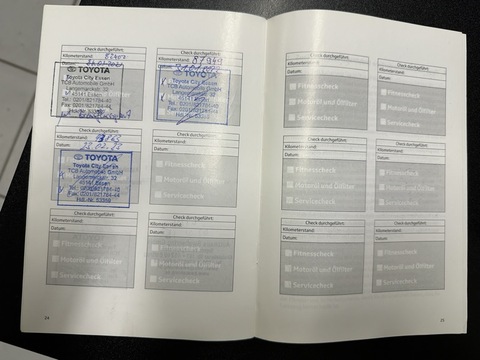 Check durchgeführt:
Kilometerstand:
Datum:
TOYOTA
Toyota City Essen
TCB Automobile GmbH
Langemarckstr. 32
45141 Essen
Tel.: 0201/821764-10
Fax: 0201/821764-44
Check durchgeführt:
Kilometerstand:
Datum:
TOYOTA
Toyota City Essen
TCB Automobile GmbH
45141 Essen
Check durchgeführt:
Kilometerstand:
Datum:
TOYOTA
Toyota City Essen
TCB Automobile GmbH
Langemarckstr. 32
45141 Essen
Tel.: 0201/821764-10
Fax: 0201/821764-44
Check durchgeführt:
Kilometerstand:
Datum:
Fitnesscheck
Motoröl und Ölfilter
Servicecheck
Check durchgeführt:
Kilometerstand:
Datum:
Fitnesscheck
Motoröl und Ölfilter
Servicecheck
Check durchgeführt:
Kilometerstand:
Datum:
Fitnesscheck
Motoröl und Ölfilter
Servicecheck
24
Check durchgeführt:
Kilometerstand:
Datum:
Fitnesscheck
Motoröl und Ölfilter
Servicecheck
Check durchgeführt:
Kilometerstand:
Datum:
Fitnesscheck
Motoröl und Ölfilter
Servicecheck
Check durchgeführt:
Kilometerstand:
Datum:
Fitnesscheck
Motoröl und Ölfilter
Servicecheck
Check durchgeführt:
Kilometerstand:
Datum:
Fitnesscheck
Motoröl und Ölfilter
Servicecheck
Check durchgeführt:
Kilometerstand:
Datum:
Fitnesscheck
Motoröl und Ölfilter
Servicecheck
Check durchgeführt:
Kilometerstand:
Datum:
Fitnesscheck
Motoröl und Ölfilter
Servicecheck
25